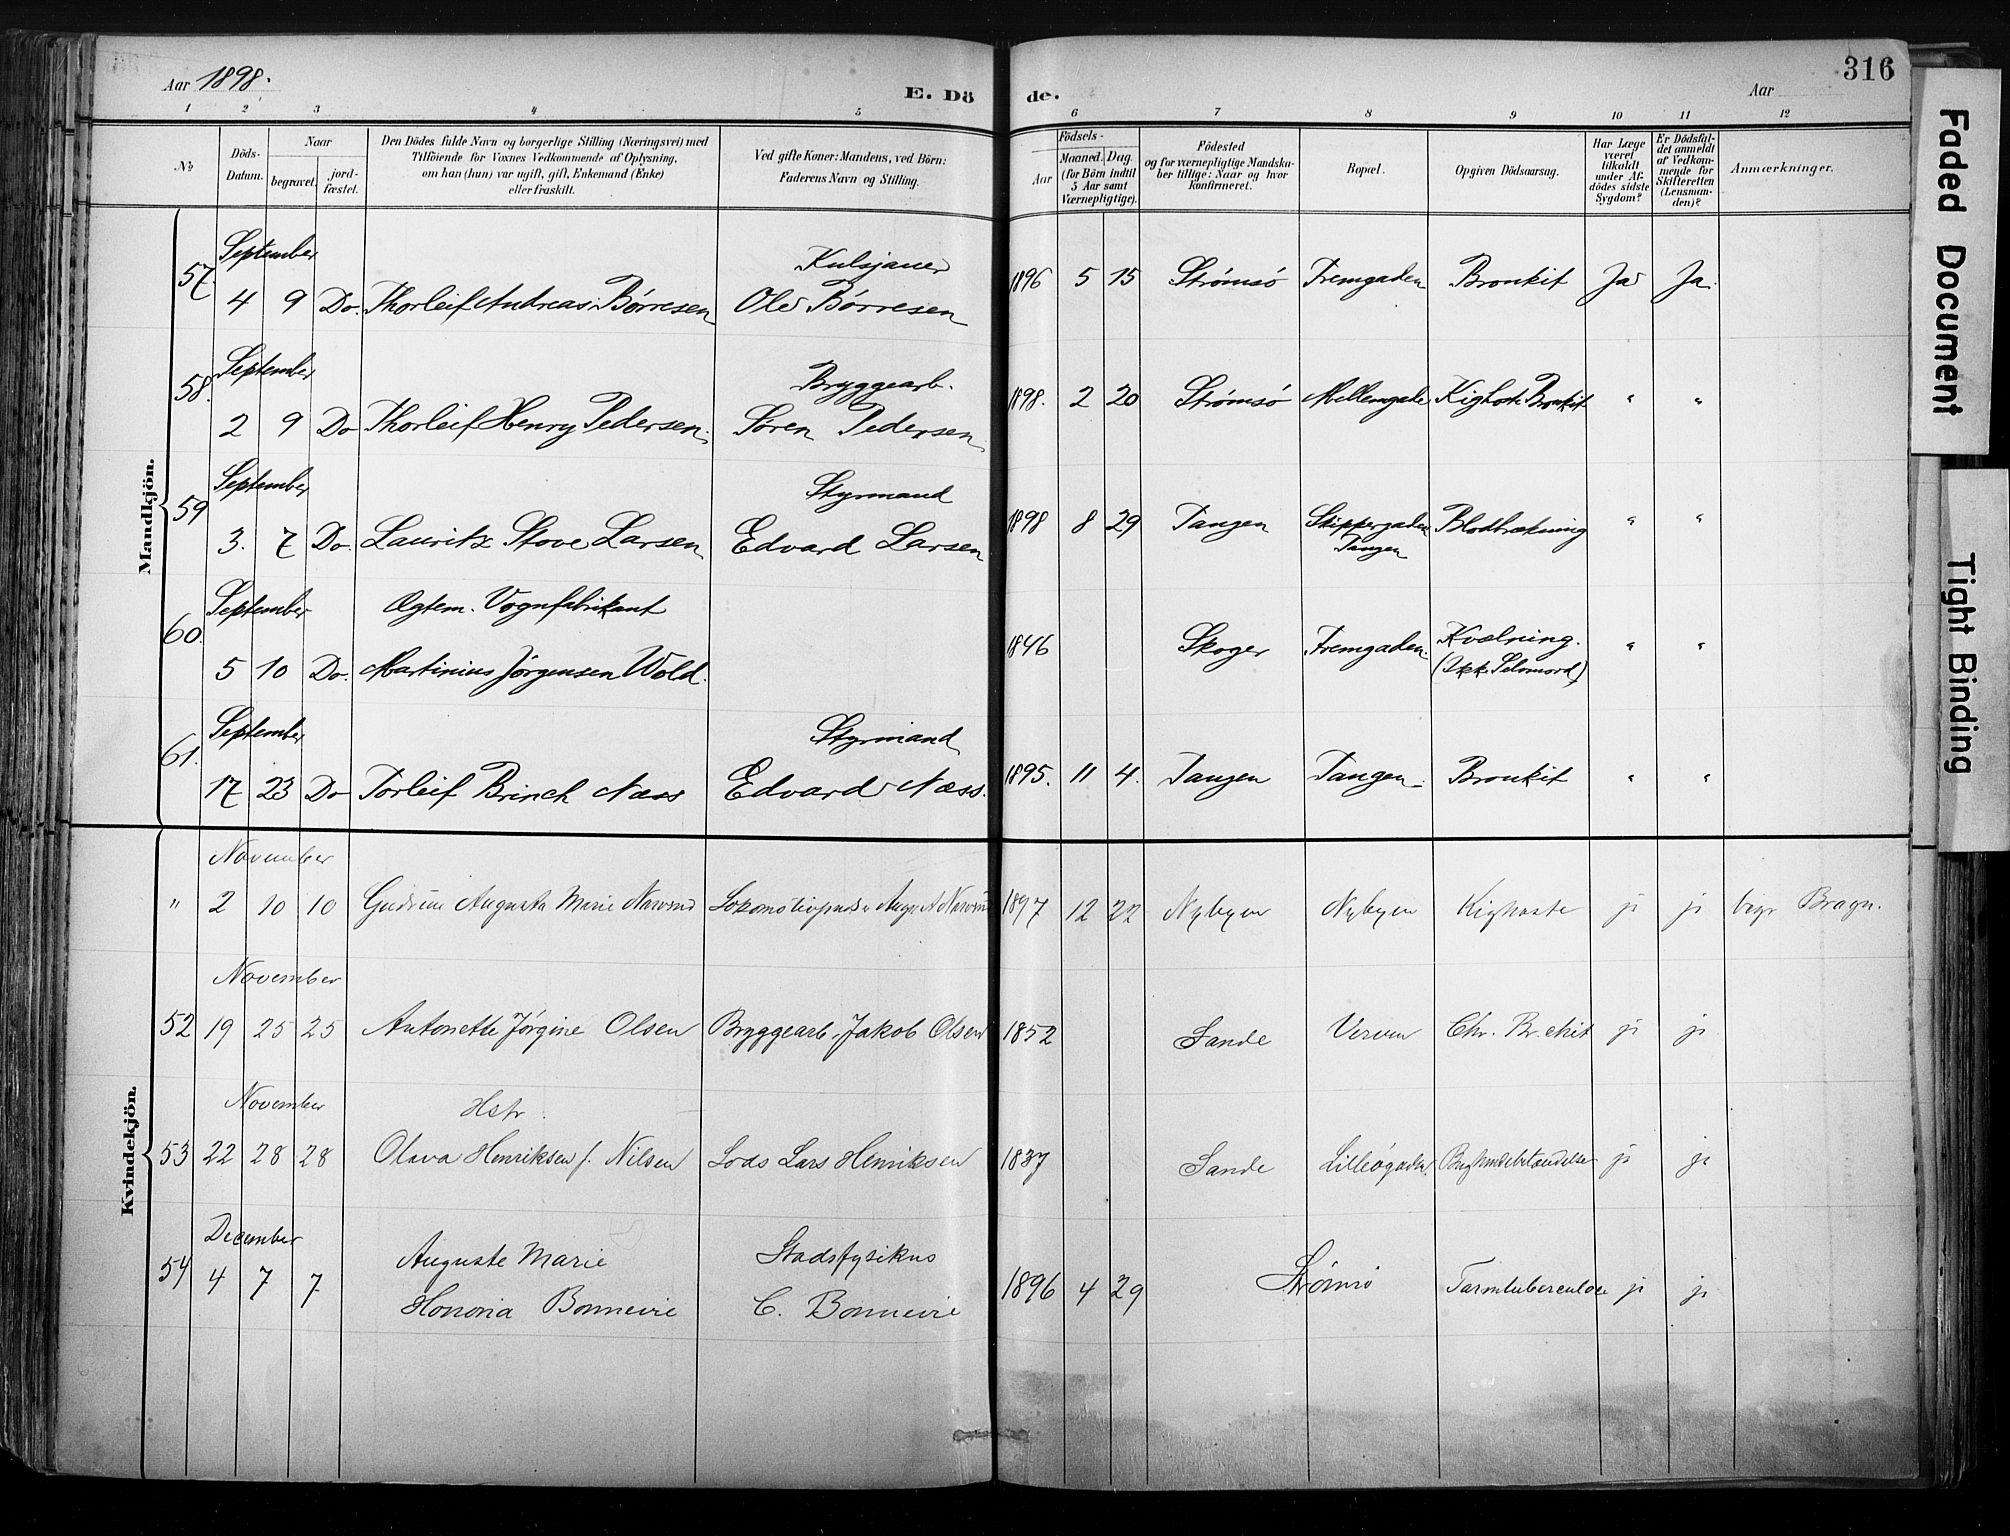 Aar 1898.
E. Dö de.
Aar
316
1 2 3 4 5 6 7 8 9 10 11 12
No.
Döds-Datum.
Naar
begravet.
jord-fæstet.
Den Dödes fulde Navn og borgerlige Stilling (Næringsvei) med
Tilföiende for Voxnes Vedkommende af Oplysning,
om han (hun) var ugift, gift, Enkemand (Enke)
eller fraskilt.
Ved gifte Koner: Mandens, ved Börn:
Faderens Navn og Stilling.
Födsels-
Aar
Maaned. Dag.
(for Börn indtil
5 Aar samt
Værnepligtige).
Födested
og for værnepligtige Mandska-
ber tillige: Naar og hvor
konfirmeret.
Bopæl.
Opgiven Dödsaarsag.
Har Læge
været
tilkaldt
under Af-
dödes sidste
Sygdom?
Er Dödsfal-
det anmeldt
af Vedkom-
mende for
Skifteretten
(Lensman-
den)?
Anmærkninger.
Mandkjön.
September Kulsjauer
57. 4 9 Do. Thorleif Andreas Børresen Ole Børresen 1896 5 15 Strømsø Fremgaden Bronkit Ja Ja.
September Bryggearb.
58. 2 9 Do Thorleif Henry Pedersen. Søren Pedersen. 1898. 2 20 Strømsø Mellemgade Kighoste Bronkit " "
September Styrmand
59 3. 7 Do. Lauritz Stove Larsen Edvard Larsen 1898 8 29 Tangen Skippergaden Tangen Blodbrækning " "
September Ægtem. Vognfabrikant
60. 5 10 Do. Martinius Jörgensen Wold. 1846 Skoger Fremgaden. Kvælning. (Ikke Selvmord) " "
September Styrmand
61. 17 23 Do Torleif Brinch Næss Edvard Næss. 1895. 11 4. Tangen Tangen Bronkit " "
Kvindekjön.
November
" 2 10 10 Gudrun Augusta Marie Narverud 1897 12 22 Nybyen Nybyen Kighoste ja ja begr Bragn.
November
52 19 25 25 Antonette Jörgine Olsen Bryggearb. Jakob Olsen 1852 Sande Verven Chr. Br.chit ja ja
November Hstr.
53 22 28 28 Olava Henriksen f. Nilsen Lods Lars Henriksen 1837 Sande Lilleögaden Bughindebetændelse ja ja
December
54 4 7 7 Auguste Marie Honoria Bonnevie Stadsfysikus C. Bonnevie 1896 4 29 Strömsö Tarmtuberculose ja ja
Faded Document
Tight Binding